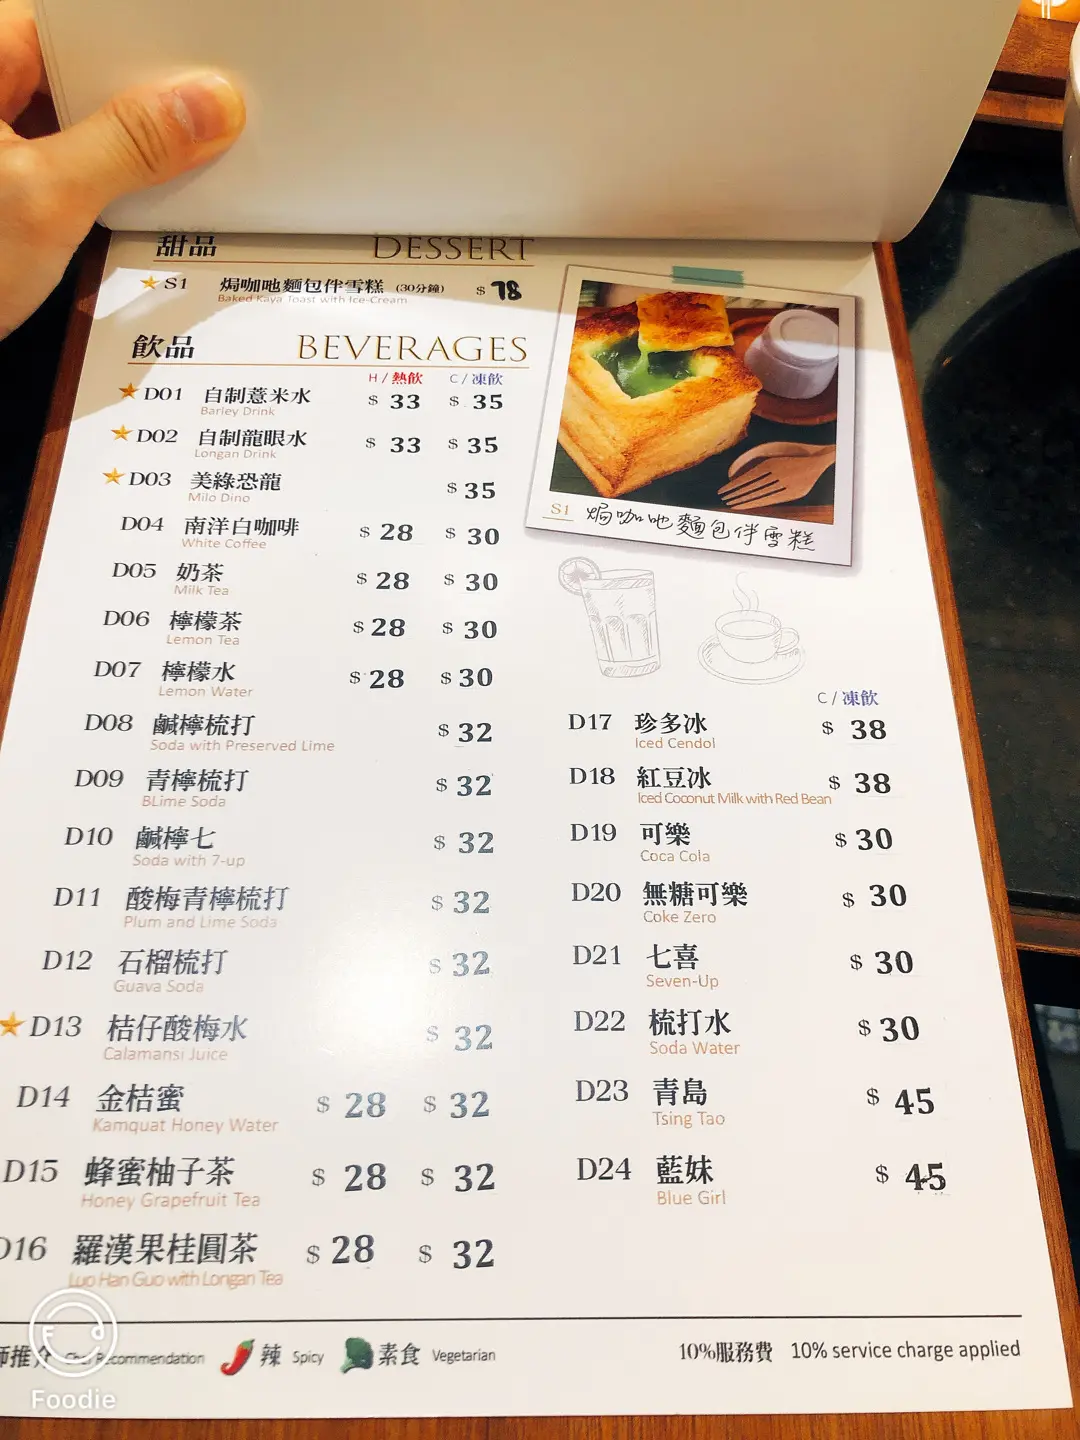 甜品 DESSERT
S1 焗咖吔麵包伴雪糕 (30分鐘) $ 78
Baked Kaya Toast with Ice-Cream
飲品 BEVERAGES
H / 熱飲 C / 凍飲
D01 自制薏米水 $ 33 $ 35
Barley Drink
D02 自制龍眼水 $ 33 $ 35
Longan Drink
D03 美綠恐龍 $ 35
Milo Dino
D04 南洋白咖啡 $ 28 $ 30
White Coffee
D05 奶茶 $ 28 $ 30
Milk Tea
D06 檸檬茶 $ 28 $ 30
Lemon Tea
D07 檸檬水 $ 28 $ 30
Lemon Water
D08 鹹檸梳打 $ 32
Soda with Preserved Lime
D09 青檸梳打 $ 32
BLime Soda
D10 鹹檸七 $ 32
Soda with 7-up
D11 酸梅青檸梳打 $ 32
Plum and Lime Soda
D12 石榴梳打 $ 32
Guava Soda
D13 桔仔酸梅水 $ 32
Calamansi Juice
D14 金桔蜜 $ 28 $ 32
Kamquat Honey Water
D15 蜂蜜柚子茶 $ 28 $ 32
Honey Grapefruit Tea
D16 羅漢果桂圓茶 $ 28 $ 32
Luo Han Guo with Longan Tea
S1 焗咖吔麵包伴雪糕
C / 凍飲
D17 珍多冰 $ 38
Iced Cendol
D18 紅豆冰 $ 38
Iced Coconut Milk with Red Bean
D19 可樂 $ 30
Coca Cola
D20 無糖可樂 $ 30
Coke Zero
D21 七喜 $ 30
Seven-Up
D22 梳打水 $ 30
Soda Water
D23 青島 $ 45
Tsing Tao
D24 藍妹 $ 45
Blue Girl
師推介 Chef Recommendation 辣 Spicy 素食 Vegetarian 10%服務費 10% service charge applied
Foodie